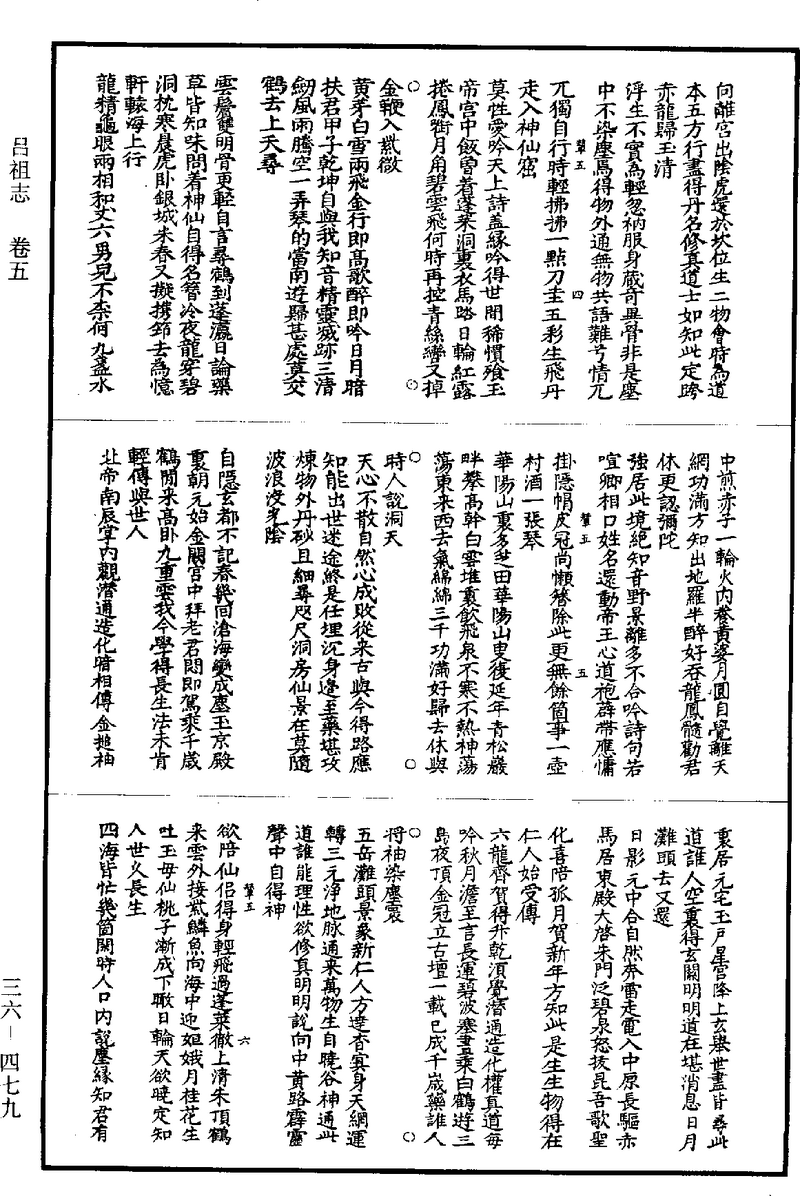 呂祖志　卷五
三六－四七九
向離宮出陰虎還於坎位生二物會時為道
本五方行盡得丹名修真道士如知此定跨
赤龍歸玉清
浮生不實為輕忽衲服身藏奇異骨非是塵
中不染塵焉得物外通無物共語難兮情兀
兀獨自行時輕拂拂一點刀圭五彩生飛丹
走入神仙窟
莫怪愛吟天上詩蓋緣吟得世間稀慣飡玉
帝宮中飯曾着蓬萊洞裏衣馬踏日輪紅露
捲鳳銜月角碧雲飛何時再控青絲轡又掉
金鞭入紫微
黄芽白雪兩飛金行即高歌醉即吟日月暗
扶君甲子乾坤自與我知音精靈滅跡三清
劒風雨騰空一弄琴的當南遊歸甚處莫交
鶴去上天尋
雲鬢雙明骨更輕自言尋鶴到蓬瀛日論藥
草皆知味問著神仙自得名簪冷夜龍穿碧
洞枕寒晨虎卧銀城來春又擬携筇去為憶
軒轅海上行
龍精龜眼兩相和丈六男兒不柰何九盞水
中煎赤子一輪火内養黄婆月圓自覺離天
網功滿方知出地羅半醉好吞龍鳳髓勸君
休更認彌陀
強居此境絶知音野景雖多不合吟詩句若
喧卿相口姓名還動帝王心道袍薜帶應慵
掛隱帽皮冠尚懶簪除此更無餘箇事一壺
村酒一張琴
華陽山裏多芝田華陽山叟復延年青松巖
畔攀高幹白雲堆裏飲飛泉不寒不熱神蕩
蕩東来西去氣綿綿三千功滿好歸去休與
時人說洞天
天心不散自然心成敗從来古與今得路應
知能出世迷途終是任埋沉身邊至藥堪攻
煉物外丹砂且細尋咫尺洞房仙景在莫隨
波浪没光陰
自隱玄都不記春幾回滄海變成塵玉京殿
裏朝元始金闕宫中拜老君悶即駕乘千歲
鶴閒来高卧九重雲我今學得長生法未肯
輕傳與世人
北帝南辰掌内觀潜通造化暗相傳金搥袖
裏居元宅玉戸星宮降上玄舉世盡皆尋此
道誰人空裏得玄關明明道在堪消息日月
灘頭去又還
日影元中合自然奔雷走電入中原長驅赤
馬居東殿大啓朱門泛碧泉怒抜昆吾歌聖
化喜陪孤月賀新年方知此是生生物得在
仁人始受傳
六龍齊賀得升乾須覺潜通造化權真道每
吟秋月澹至言長運碧波寒晝乘白鶴遊三
島夜頂金冠立古壇一載已成千歳藥誰人
将袖染塵寰
五岳灘頭景象新仁人方達杳冥身天網運
轉三元淨地脉通来萬物生自曉谷神通此
道誰能理性欲修真明明說向中黄路霹靂
聲中自得神
欲陪仙侣得身輕飛過蓬萊徹上清朱頂鶴
来雲外接紫鱗魚向海中迎姮娥月桂花先
吐王母仙桃子漸成下瞰日輪天欲曉定知
人世久長生
四海皆忙幾箇閒時人口内說塵緣知君有